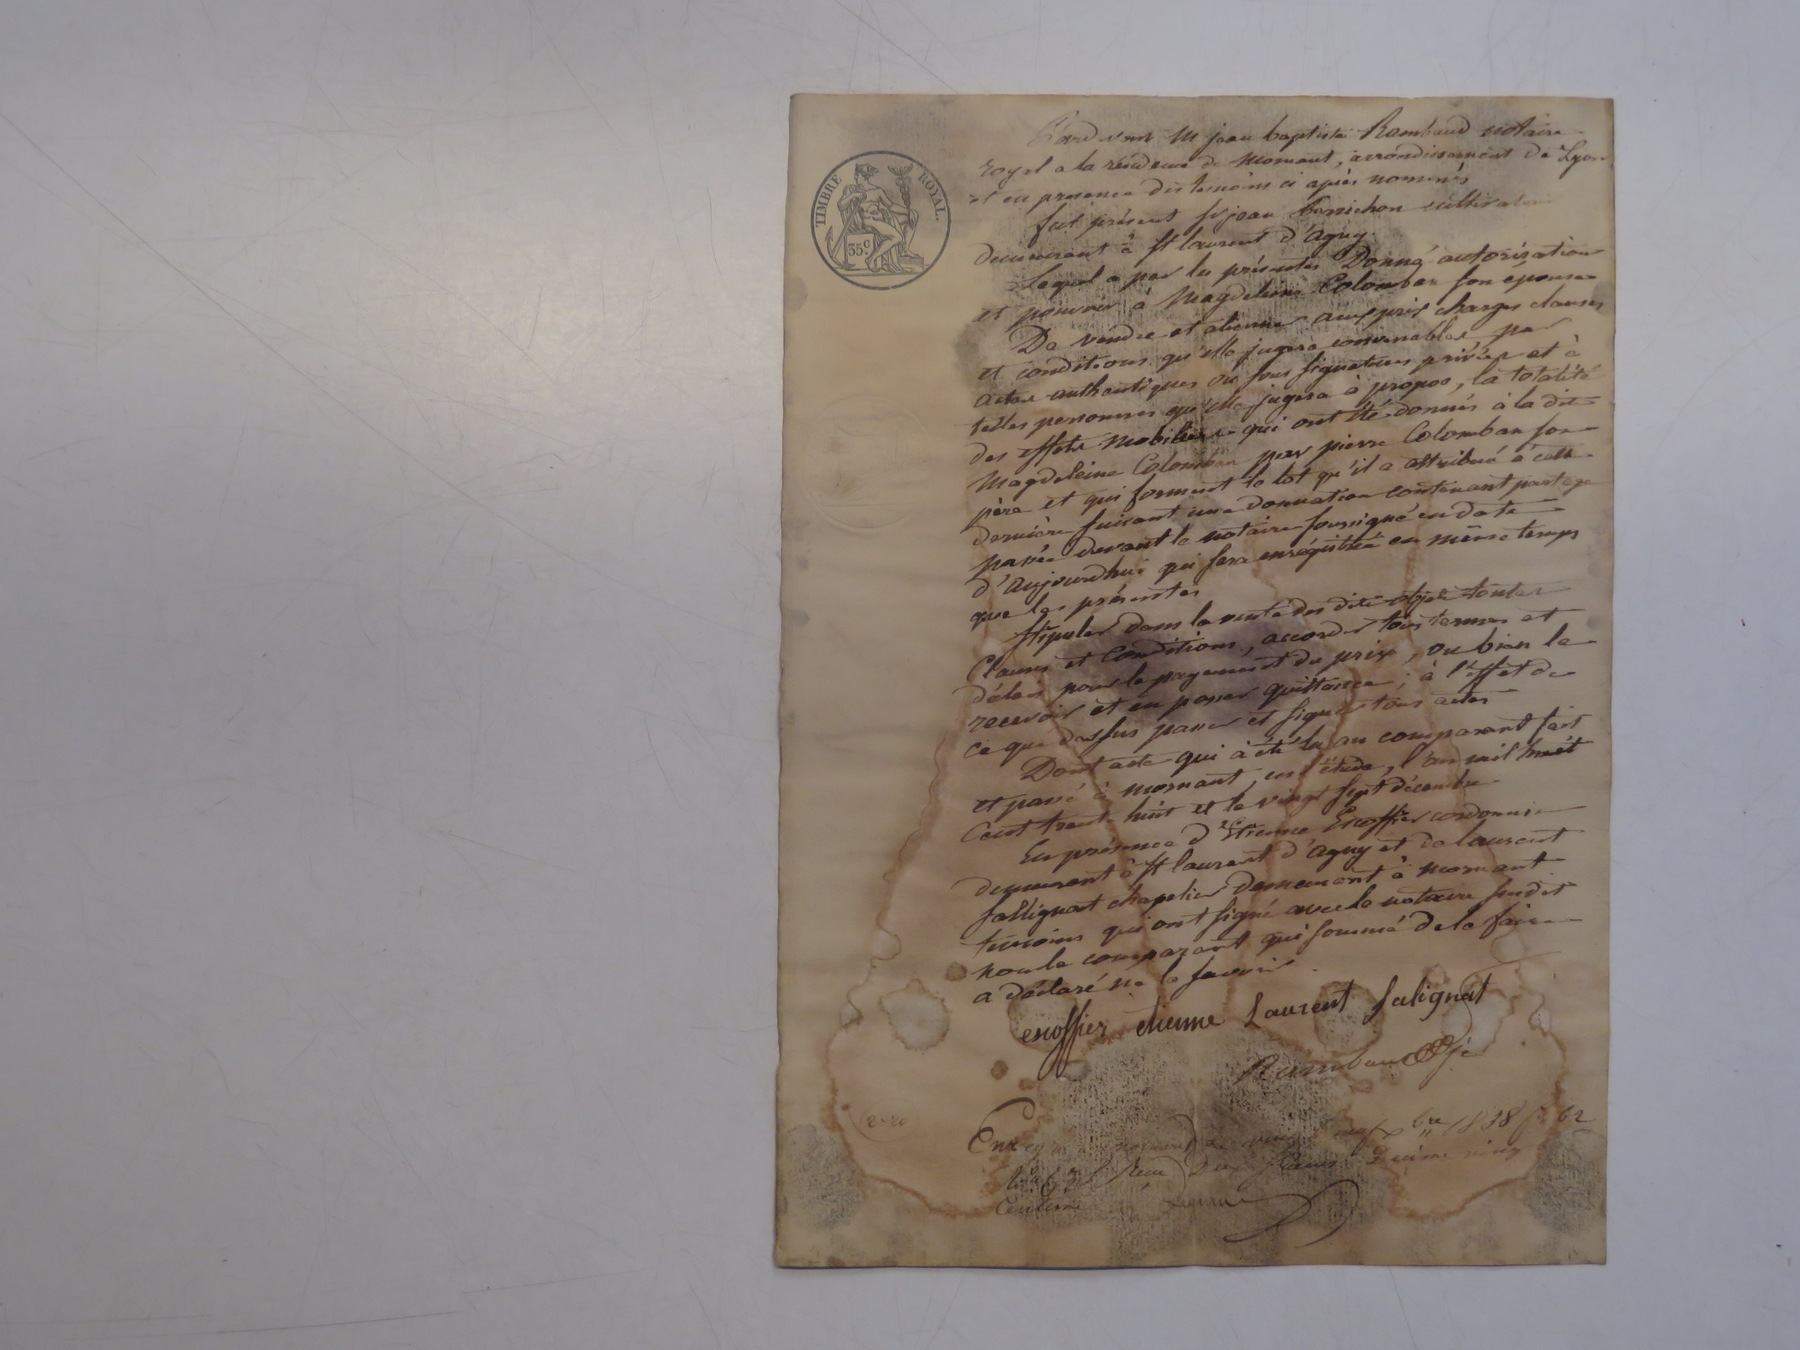 TIMBRE ROYAL.
35c
Pardevant Me jean baptiste Rambaud notaire
royal a la résidence de Mornant, arrondissement de Lyon
et en presence des temoins ci après nommés
fut présent sr jean bonichon cultivateur
demeurant à St laurent d'agny.
Lequel a par les présentes Donné autorisation
et pouvoir à Magdeleine Colomban son épouse
De vendre et aliener aux prix charges clauses
et conditions qu'elle jugera convenables par
actes authentiques ou sous signatures privées et à
telles personnes qu'elle jugera à propos, la totalité
des effets mobiliers qui ont été donnés à la dite
Magdeleine Colomban par pierre Colomban son
père et qui forment le lot qu'il a attribué à cette
dernière suivant une donnation contenant partage
passée devant le notaire soussigné en date
d'aujourdhui qui sera enrégistrée en même temps
que les présentes
Stipuler dans la vente des dits objets toutes
Clauses et conditions, accorder tous termes et
délais pour le payement du prix, ou bien le
recevoir et en passer quittance; à l'effet de
ce que dessus passer et signer tous actes
Dont acte qui à été lu au comparant fait
et passé à mornant, en l'étude, l'an mil huit
Cent trente huit et le vingt sept décembre
En présence d'Etienne Escoffier cordonnier
demeurant à St laurent d'agny et de laurent
sallignat chapelier demeurant à mornant
temoins qui ont signé avec le notaire susdit
non le comparant qui sommé de le faire
a déclaré ne le savoir
escoffier etienne Laurent Salignat
Rambaud
2-20
Enregistré à mornant le vingt 1838 62
Reçu Deux francs Decime vingt
Centimes